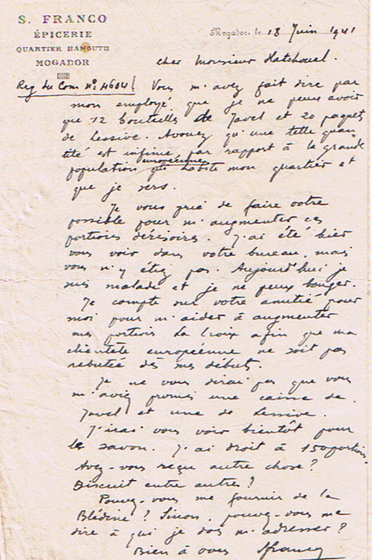 S. FRANCO
ÉPICERIE
QUARTIER HAMOUTH
MOGADOR
Mogador, le 18 Juin 1941
Cher Monsieur Hatchouel.
Reg du Com N° 4604
Vous m'avez fait dire par
mon employé que je ne peux avoir
que 12 bouteilles de Javel et 20 paquets
de lessive. Avouez qu'une telle quan
tité est infime par rapport à la grande
population européenne qui habite mon quartier et
que je sers.
Je vous prie de faire votre
possible pour m'augmenter ces
portions dérisoires. J'ai été hier
vous voir dans votre bureau, mais
vous n'y étiez pas. Aujourd'hui, je
suis malade et je ne peux bouger.
Je compte sur votre amitié pour
moi pour m'aider à augmenter
mes portions La Croix afin que ma
clientèle européenne ne soit pas
rebutée dès mes débuts.
Je ne vous dirai pas que vous
m'aviez promis une caisse de
Javel et une de lessive.
J'irai vous voir bientôt pour
le savon. J'ai droit à 150 portions.
Avez-vous reçu autre chose?
Biscuit entre autres?
Pouvez-vous me fournir de la
Blédine? Sinon, pouvez-vous me
dire à qui je dois m'adresser?
Bien à vous SFranco